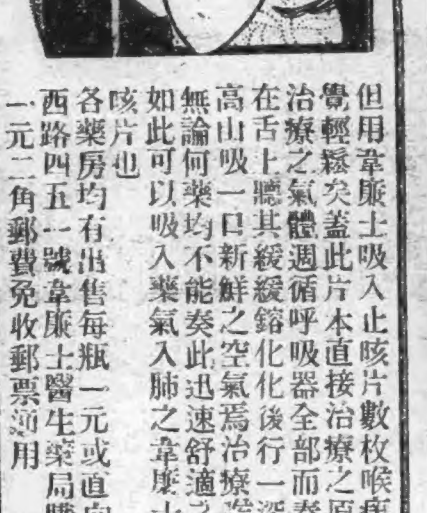 但用韋廉士吸入止咳片數枚喉
覺輕鬆矣蓋此片本直接治療之
治療之氣體週循呼吸器全部而
在舌上聽其緩緩鎔化化後行一深
高山吸一口新鮮之空氣焉治療
無論何藥均不能奏此迅速舒適之
如此可以吸入藥氣入肺之韋廉士
咳片也
各藥房均有出售每瓶一元或直向
西路四五一號韋廉士醫生藥局
一元二角郵費免收郵票通用